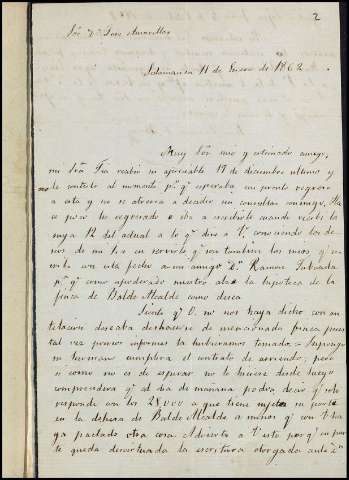 2
Sor Dn Jose
Salamanca 11 de Enero de 1862
Muy Sor mio y estimado amigo,
mi Sra Tia recibio su apreciable 17 de diciembre ultimo y
no contestó al momento pr qe esperaba mi pronto regreso
a esta y no se atrevia a decidir sin consultar conmigo. Ha
poco he regresado e iba a escribirle cuando recibi la
suya 12 del actual a lo qe dire a V. conociendo los de-
seos de mi tia en servirle qe son tambien los mios qe es-
cribo con esta fecha a mi amigo Dn Ramon
pa qe como apoderado nuestro la hipoteca de la
finca de Baldo Alcalde como desea
Siento qe V. no nos haya dicho con an-
telacion deseaba deshacerse de mencionada finca pues
tal vez previos informes la hubieramos tomado. Supongo
su hermano cumplira el contrato de arriendo; pero
si como no es de esperar no lo hiciese desde luego
comprendera qe el dia de mañana podra decir qe solo
responde con los 28000 a que tiene sujeta su parte
en la dehesa de Baldo Alcalde a menos qe con V. ha-
ya pactado otra cosa. Advierto a V. esto por qe en par-
te queda desvirtuada la escritura otorgada ante Dn